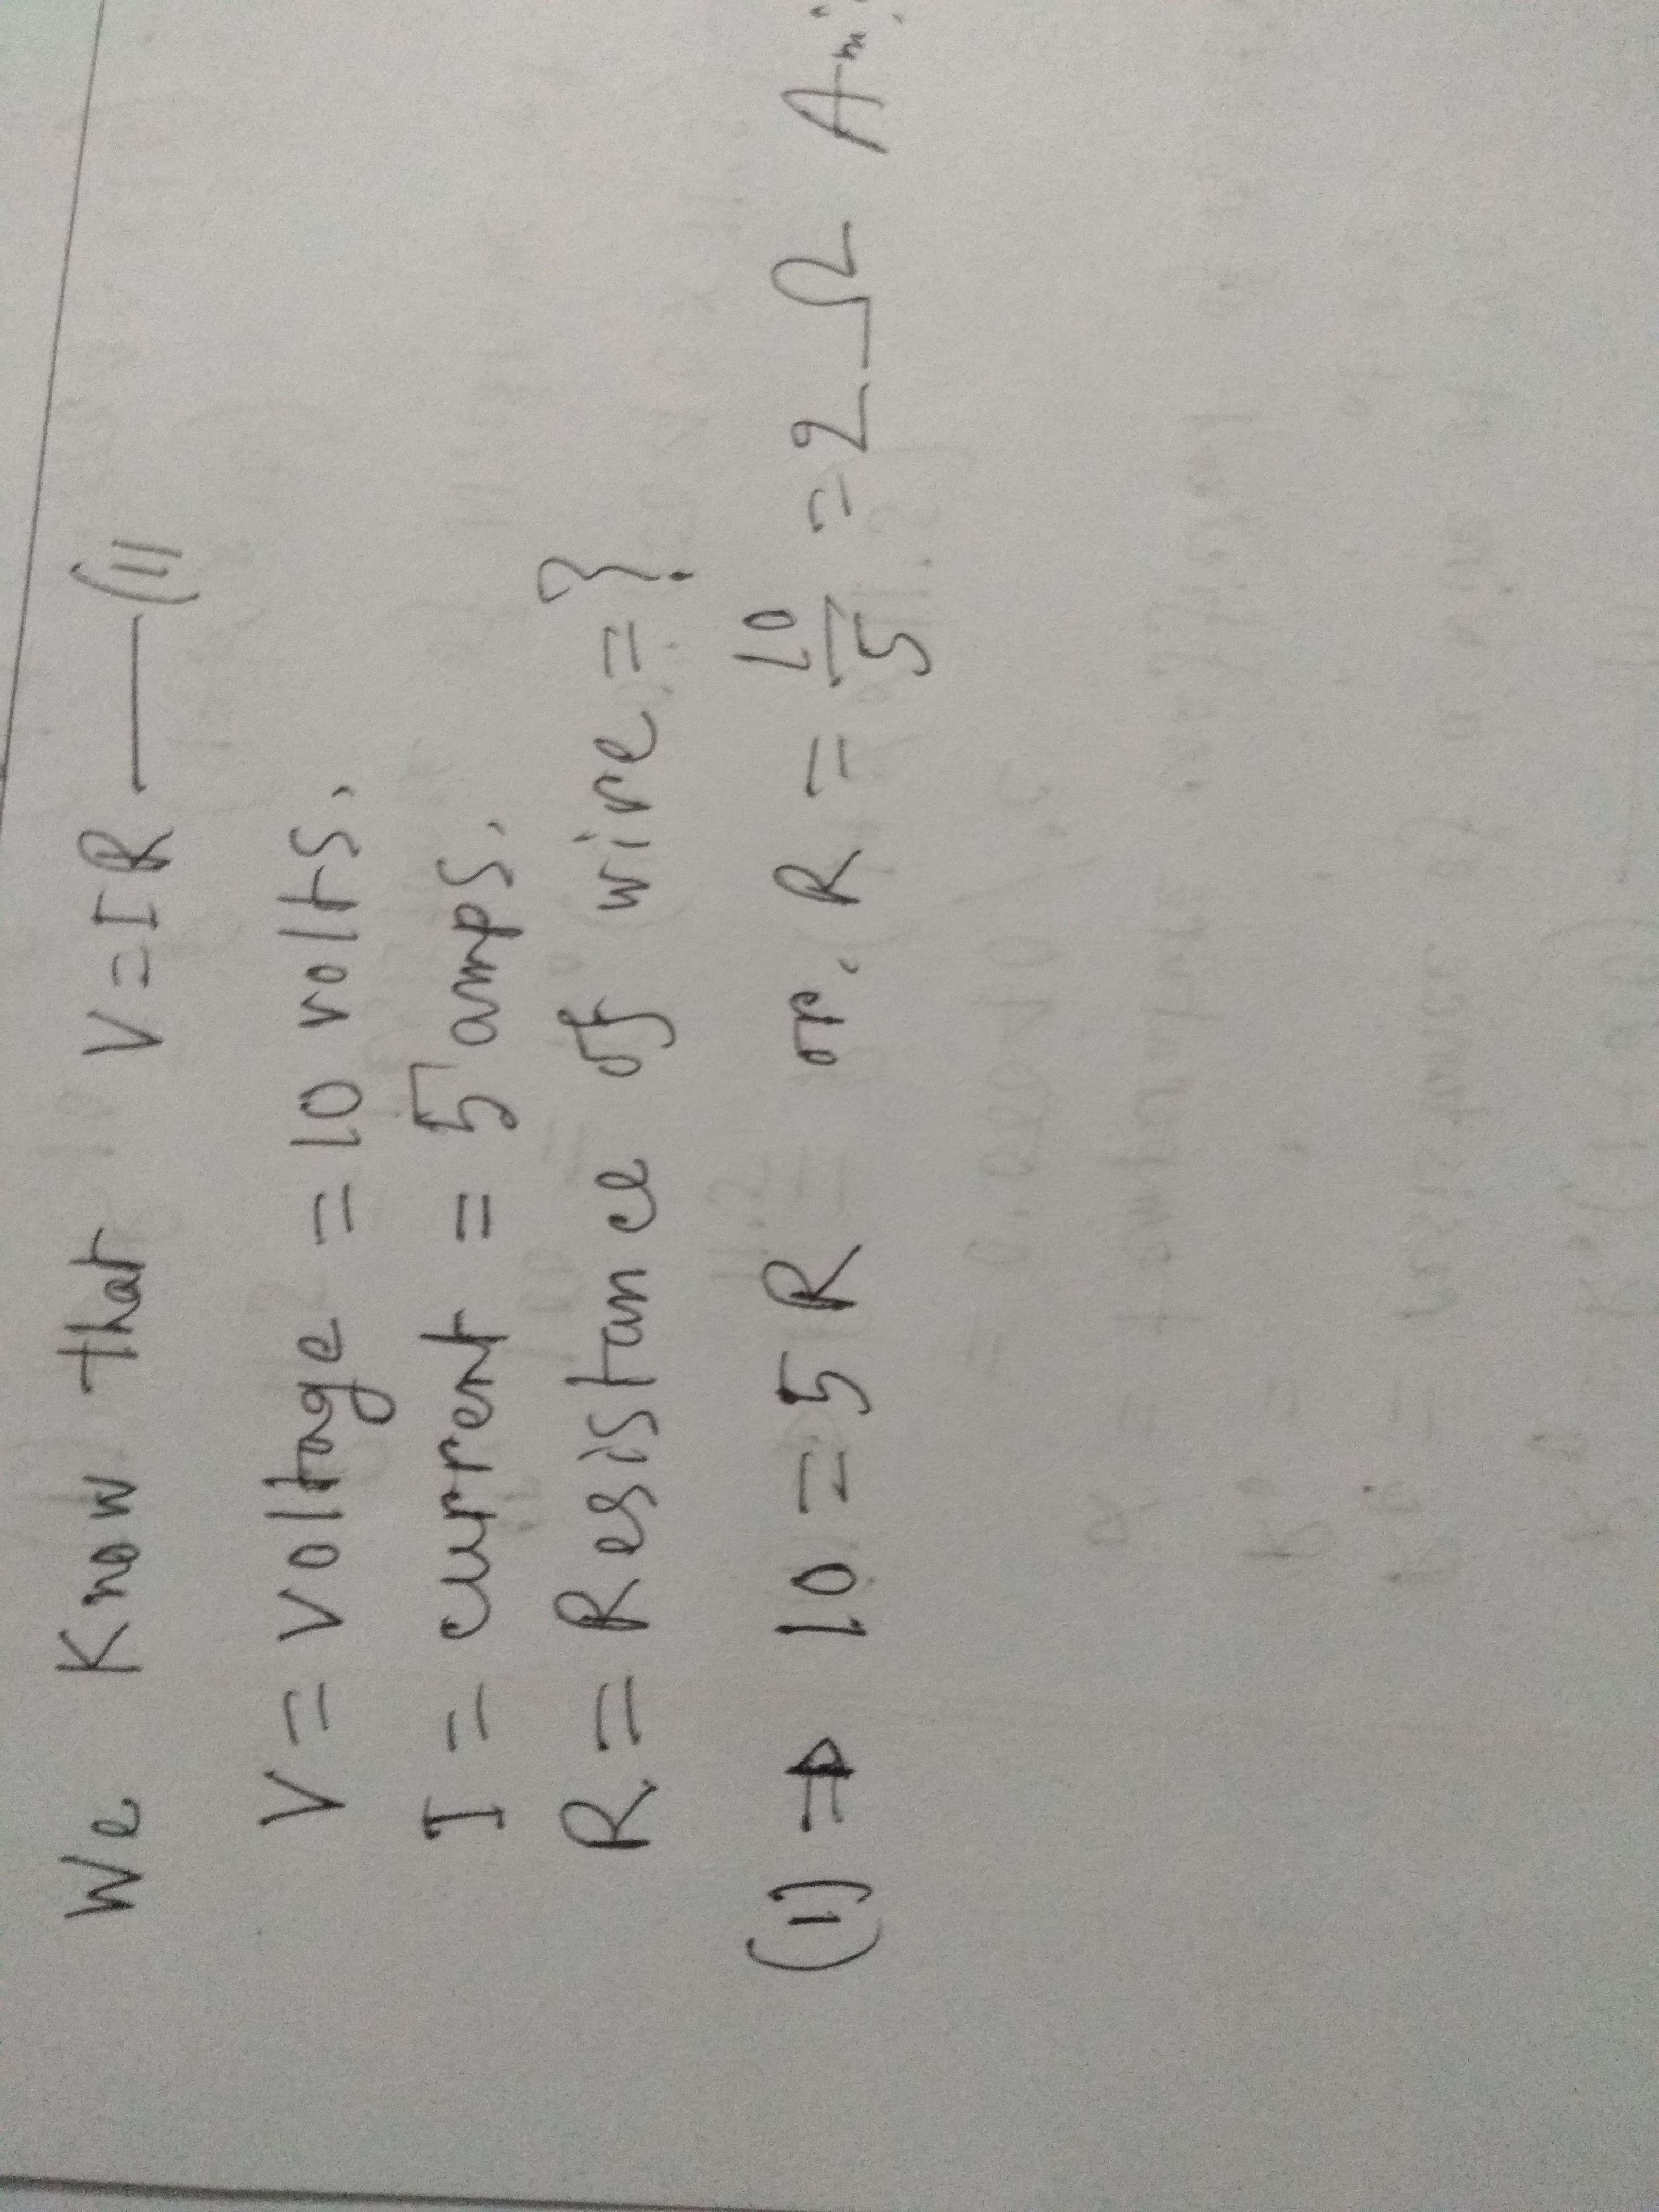 We Know that V = IR —— (1)
V = voltage = 10 volts.
I = current = 5 amps.
R = Resistance of wire = ?
(1) ⇒ 10 = 5R or, R = 10/5 = 2 Ω Ans.